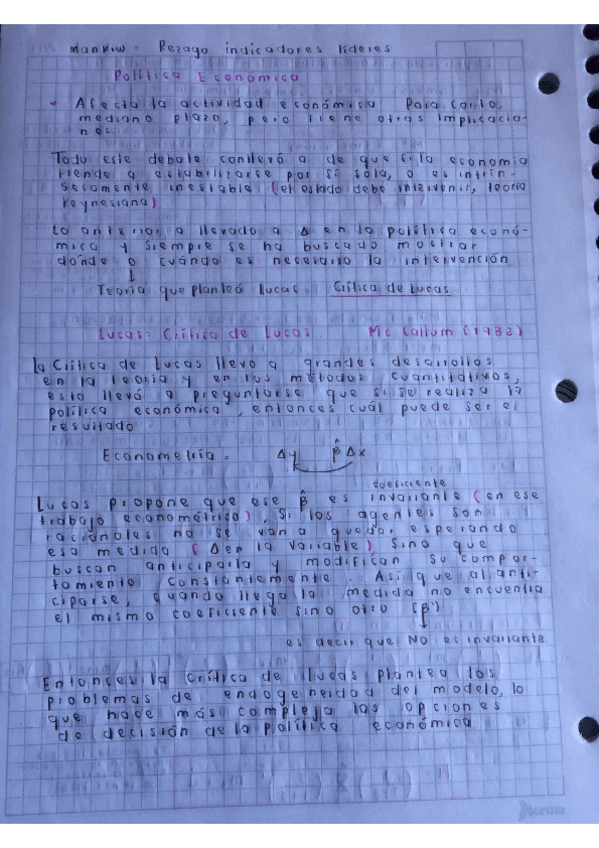 Mankiw = Rezago indicadores líderes
Política Económica
- Afecta la actividad económica Para corto,
mediano plazo, pero tiene otras implicacio-
nes
Todo este debate conllevó a de que si la economía
tiende a estabilizarse por sí sola, o es intrín-
secamente inestable (el estado debe intervenir, teoría
keynesiana)
Lo anterior a llevado a Δ en la política econó-
mica y siempre se ha buscado mostrar
dónde o cuándo es necesario la intervención
↓
Teoría que planteó Lucas Crítica de Lucas
Lucas: Crítica de Lucas Mc Callum (1982)
la Crítica de Lucas llevo a grandes desarrollos
en la teoría y en los métodos cuantitativos,
esto llevó a preguntarse que si se realiza la
política económica, entonces cuál puede ser el
resultado
Econometría = Δy β̂ Δx
coeficiente
Lucas propone que ese β̂ es invariante (en ese
trabajo econométrico), Si los agentes son
racionales no se van a quedar esperando
esa medida (Δ en la variable) sino que
buscan anticiparla y modifican su compor-
tamiento constantemente. Así que al anti-
ciparse, cuando llega la medida no encuentra
el mismo coeficiente sino otro (β')
↓
es decir que NO es invariante
Entonces la Crítica de Lucas plantea los
problemas de endogeneidad del modelo, lo
que hace más compleja las opciones
de decisión de la política económica
norma